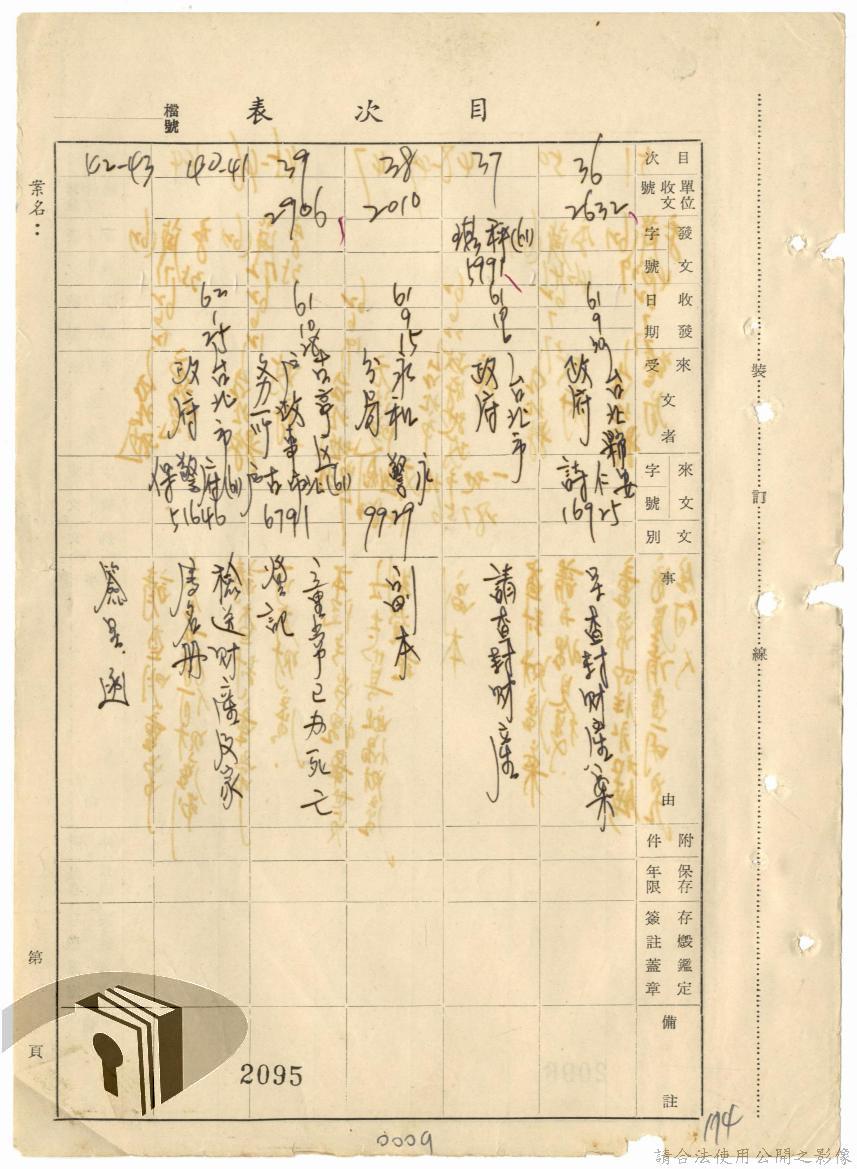 目次表
檔號
案名：
第 頁
裝訂線
目次
單位收文號
發文字號
收發日期
來文受文者
來文字號別
事由
附件
保存年限
存燬鑑定簽註蓋章
備註
36
2632
61 9
台北縣
政府
16925
查封財產案
37
(61)
5991
61
台北市
政府
請查封財產
38
2010
61 9 15
永和
分局
永警
9929
副本
39
2906
61 10
古亭區
戶政事
務所
(61)
6791
已為死亡
登記
40-41
62 1 25
台北市
政府
(61)
府警保
51646
檢送財產及家
屬名冊
42-43
簽呈
2095
0009
174
請合法使用公開之影像